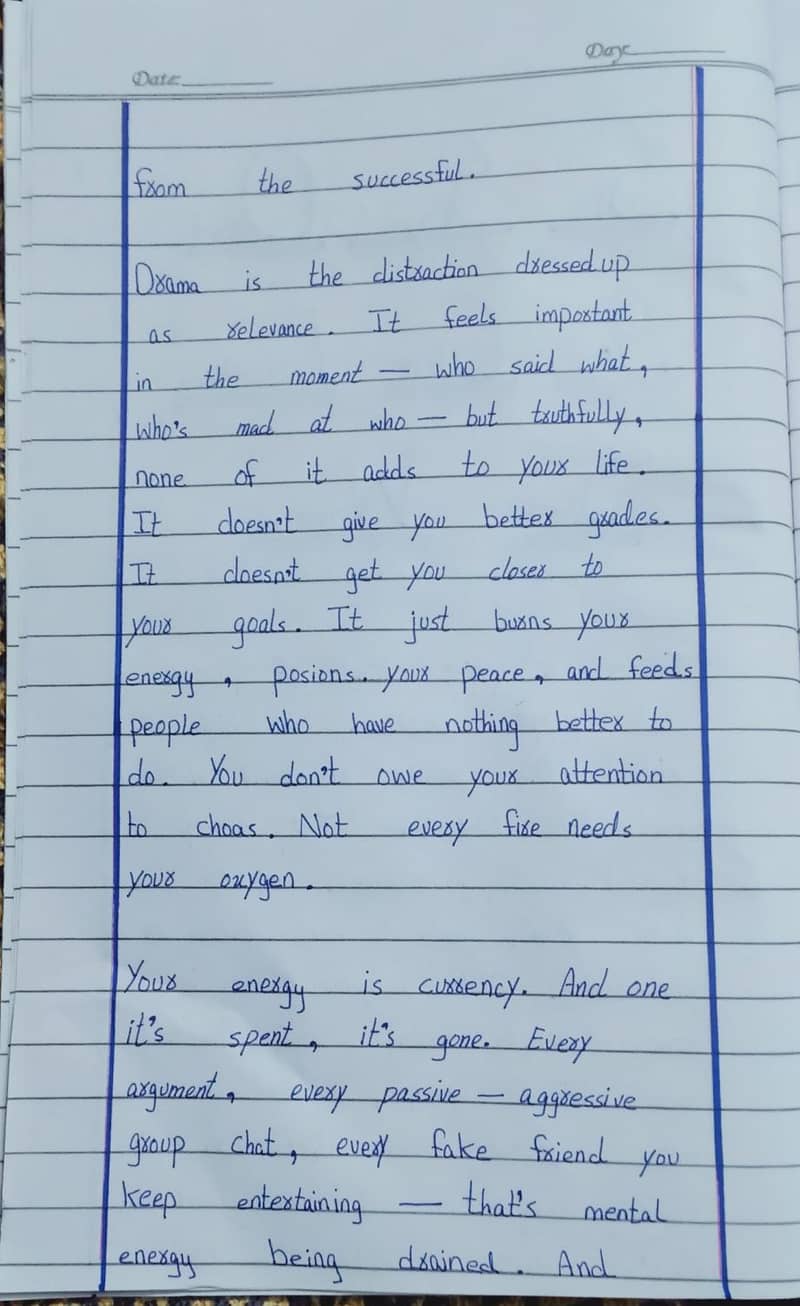 Date
Day
from the successful.
Drama is the distraction dressed up
as relevance. It feels important
in the moment — who said what,
who's mad at who — but truthfully,
none of it adds to your life.
It doesn't give you better grades.
It doesn't get you closer to
your goals. It just burns your
energy, posions. your peace, and feeds
people who have nothing better to
do. You don't owe your attention
to choas. Not every fire needs
your oxygen.
Your energy is currency. And one
it's spent, it's gone. Every
argument, every passive — aggressive
group chat, every fake friend you
keep entertaining — that's mental
energy being drained. And